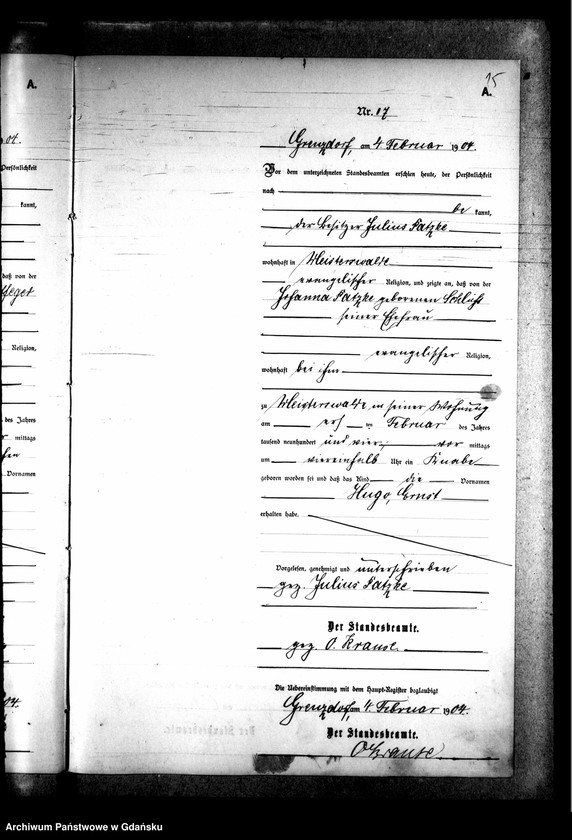 A.
15
A.
Nr. 17
04.
Grenzdorf, am 4. Februar 1904.
Persönlichkeit
Vor dem unterzeichneten Standesbeamten erschien heute, der Persönlichkeit
nach
kannt,
be kannt,
der Besitzer Julius Patzke
wohnhaft in Meisterswalde
daß von der
evangelischer Religion, und zeigte an, daß von der
Johanna Patzke geborenen Schlicht
seiner Ehefrau
Religion,
evangelischer Religion,
wohnhaft bei ihm
zu Meisterswalde in seiner Wohnung
des Jahres
am ersten Februar des Jahres
mittags
tausend neunhundert und vier, vor mittags
um viereinhalb Uhr ein Knabe
Vornamen
geboren worden sei und daß das Kind die Vornamen
Hugo, Ernst
erhalten habe.
Vorgelesen, genehmigt und unterschrieben
gez. Julius Patzke
Der Standesbeamte.
gez. O. Krause.
Die Uebereinstimmung mit dem Haupt-Register beglaubigt
04.
Grenzdorf, am 4. Februar 1904.
Der Standesbeamte.
O Krause
Archiwum Państwowe w Gdańsku